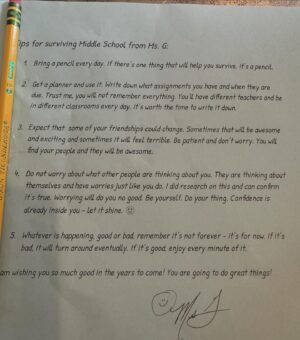 ips for surviving Middle School from Ms. G:
1. Bring a pencil every day. If there's one thing that will help you survive, it's a pencil.
2. Get a planner and use it. Write down what assignments you have and when they are
due. Trust me, you will not remember everything. You'll have different teachers and be
in different classrooms every day. It's worth the time to write it down.
3. Expect that some of your friendships could change. Sometimes that will be awesome
and exciting and sometimes it will feel terrible. Be patient and don't worry. You will
find your people and they will be awesome.
4. Do not worry about what other people are thinking about you. They are thinking about
themselves and have worries just like you do. I did research on this and can confirm
it's true. Worrying will do you no good. Be yourself. Do your thing. Confidence is
already inside you - let it shine. ☺
5. Whatever is happening, good or bad, remember it's not forever - it's for now. If it's
bad, it will turn around eventually. If it's good, enjoy every minute of it.
am wishing you so much good in the years to come! You are going to do great things!
Ms G